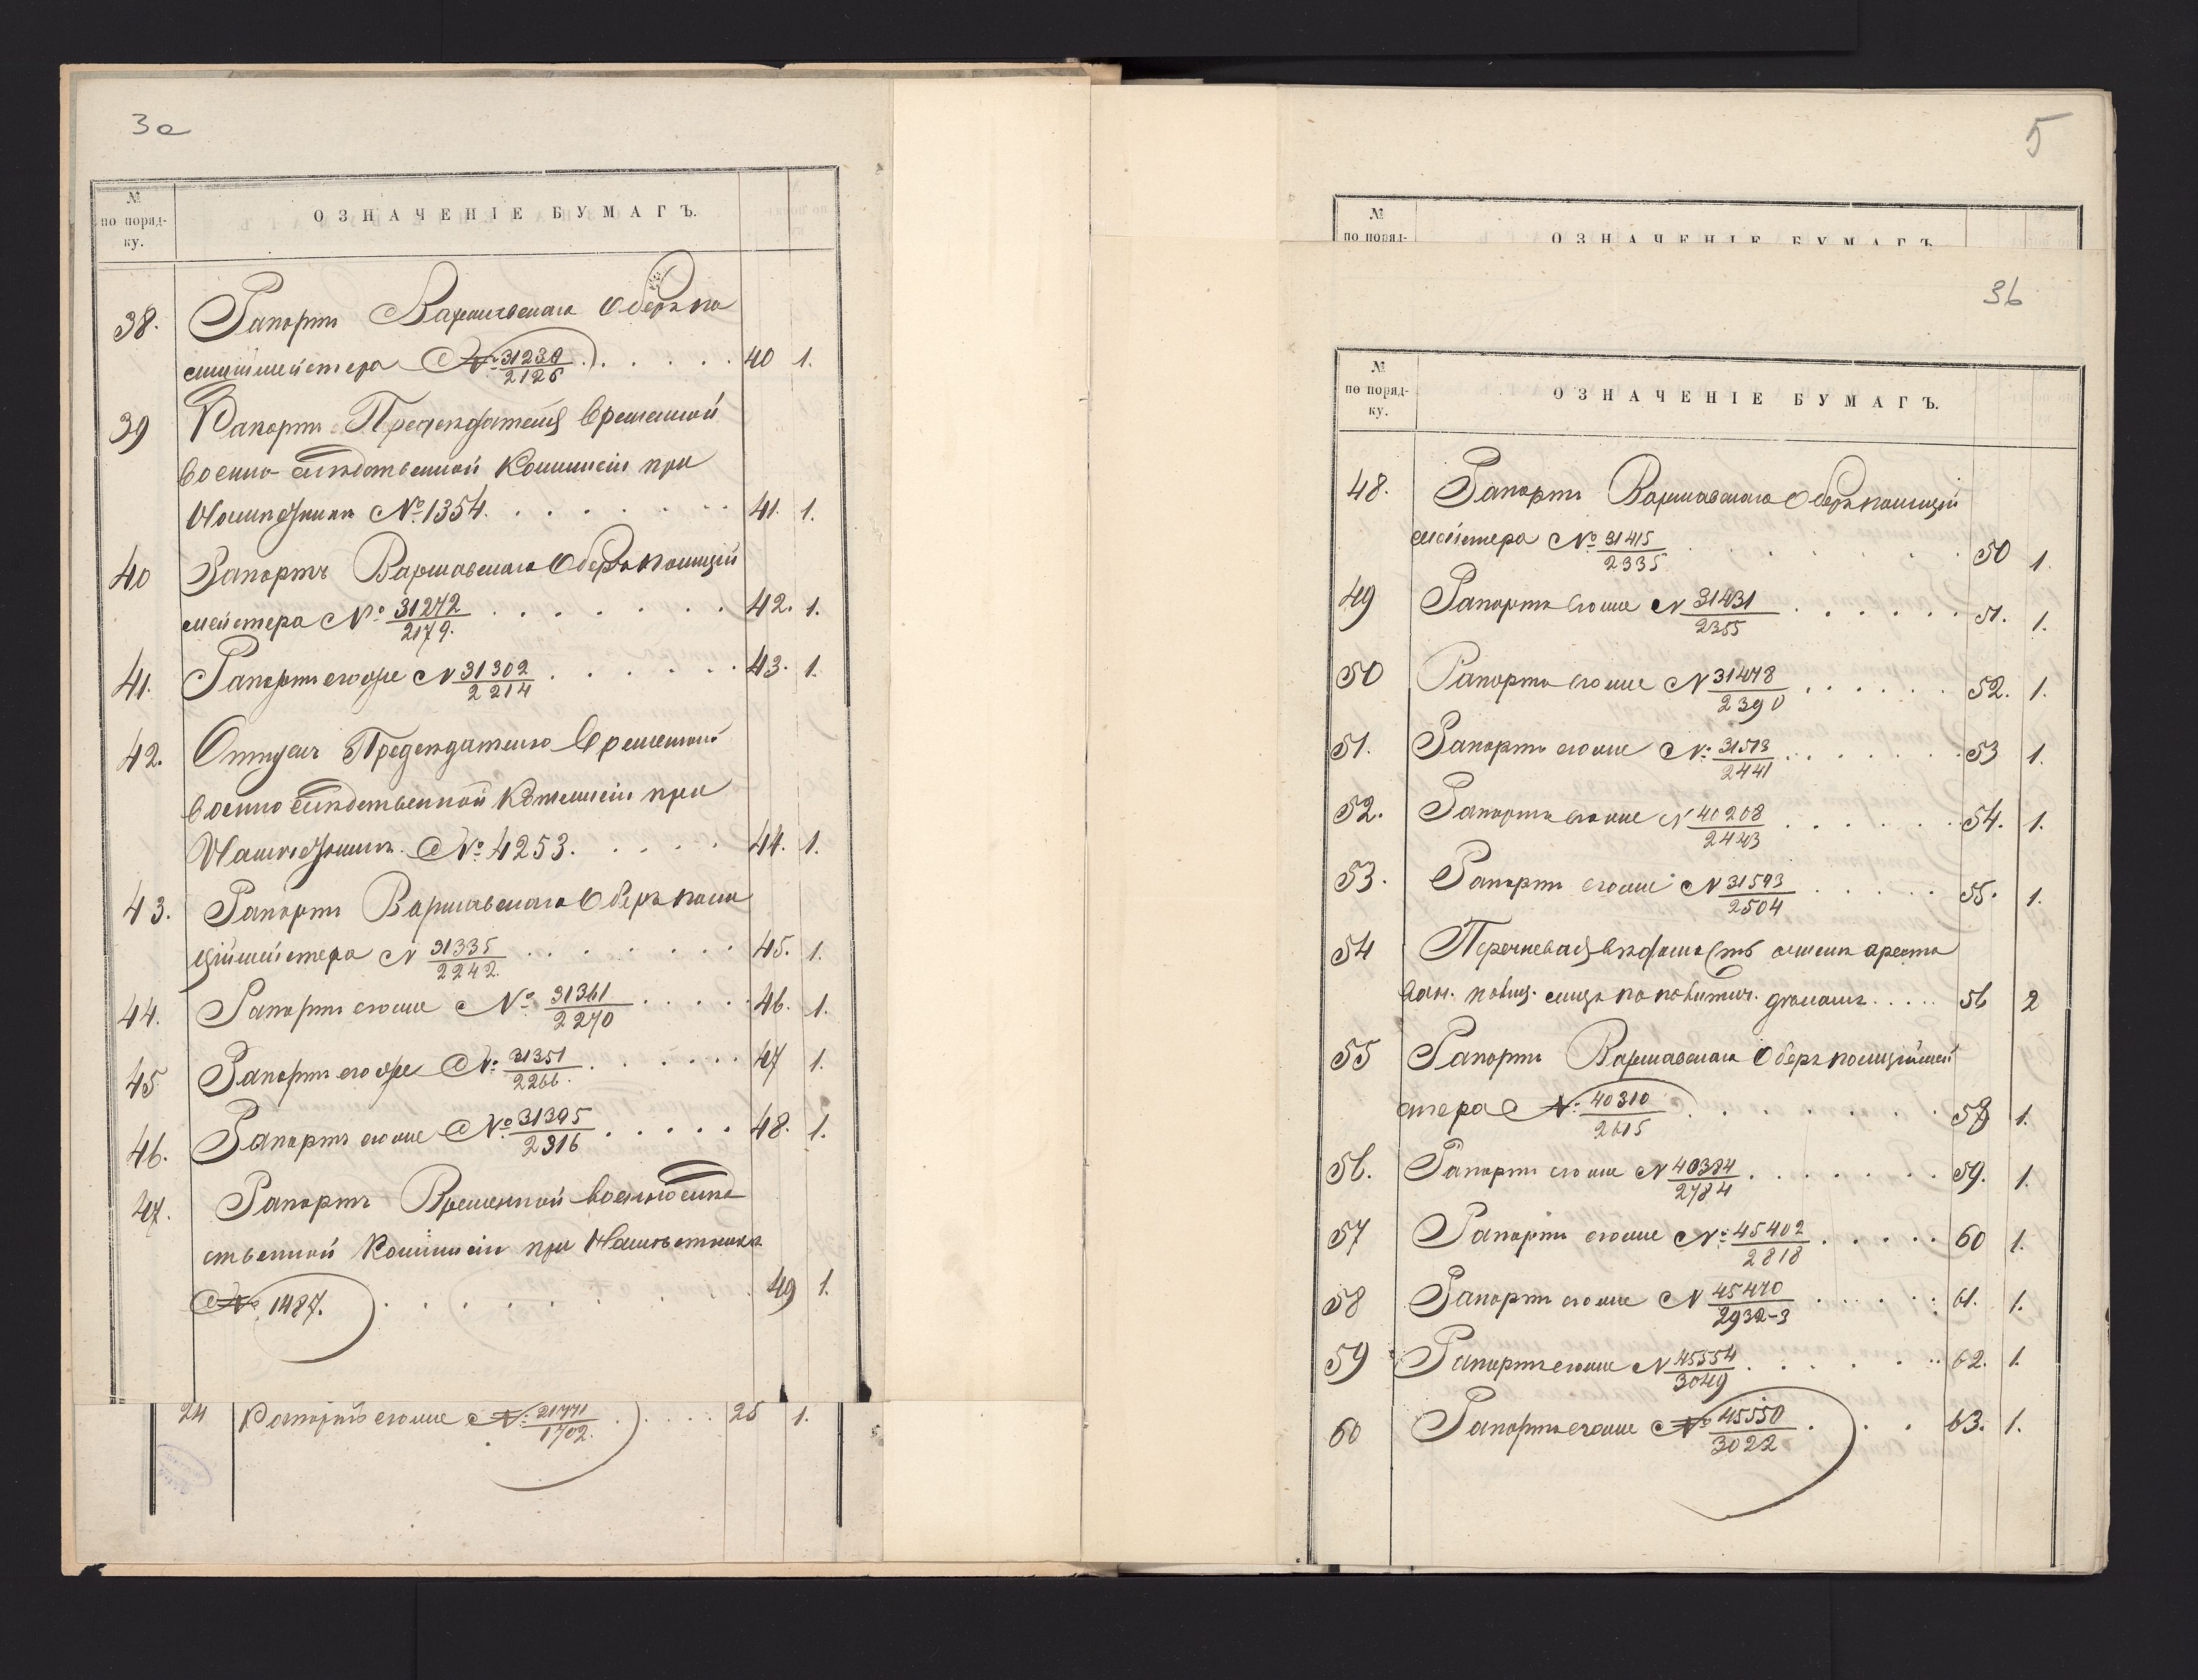 3a
№
по поряд-
ку.
ОЗНАЧЕНІЕ БУМАГЪ.
38. Рапортъ Варшавскаго Оберъ по
лиціймейстера № 31230/2126 . . . . . 40 1.
39 Рапортъ Предсѣдателя Временной
Военно-слѣдственной Коммисіи при
Намѣстникѣ № 1354. . . . . . . 41. 1.
40 Рапортъ Варшавскаго Оберъ полицій
мейстера № 31272/2179. . . . . . . 42. 1.
41. Рапортъ его же № 31302/2214 . . . . . . 43. 1.
42. Отпускъ Предсѣдателю Временной
военно слѣдственной Коммисіи при
Намѣстникѣ. № 4253. . . . . 44. 1.
43. Рапортъ Варшавскаго Оберъ поли
ціймейстера № 31335/2242. . . . . . . . 45. 1.
44. Рапортъ его же № 31361/2270 . . . . . 46. 1.
45 Рапортъ его же № 31351/2266. . . . . . . 47 1.
46. Рапортъ его же № 31395/2316 . . . . . 48. 1.
47. Рапортъ Временной военнослѣд
ственной Коммисіи при Намѣстникѣ
№ 1487. . . . . . . . . 49 1.
24 Рапортъ его же № 21771/1702. . . . . 25 1.
5
№
по поряд-
ОЗНАЧЕНІЕ БУМАГЪ
3b
№
по поряд-
ку.
ОЗНАЧЕНІЕ БУМАГЪ.
48. Рапортъ Варшавскаго Оберъ полицій
мейстера № 31415/2335 . . . . . . 50 1.
49 Рапортъ его же № 31431/2355 . . . . . . 51. 1.
50 Рапортъ его же № 31478/2390 . . . . . . 52. 1.
51. Рапортъ его же № 31513/2441 . . . . . . . 53 1.
52. Рапортъ его же № 40208/2443 . . . . . . 54. 1.
53. Рапортъ его же № 31593/2504 . . . . . 55. 1.
54 Перечневая вѣдомость о числѣ аресто
ван. лицъ по политич. дѣламъ . . . . . 56 2
55 Рапортъ Варшавскаго Оберъ полиціймей
стера № 40310/2615 . . . . . . . . 58 1.
56. Рапортъ его же № 40384/2784 . . . . . . . 59. 1.
57 Рапортъ его же № 45402/2818 . . . . . 60 1.
58 Рапортъ его же № 45470/2932-3 . . . . . . 61. 1.
59 Рапортъ его же № 45554/3049 . . . . . . 62. 1.
60 Рапортъ его же № 45550/3022 . . . 63. 1.